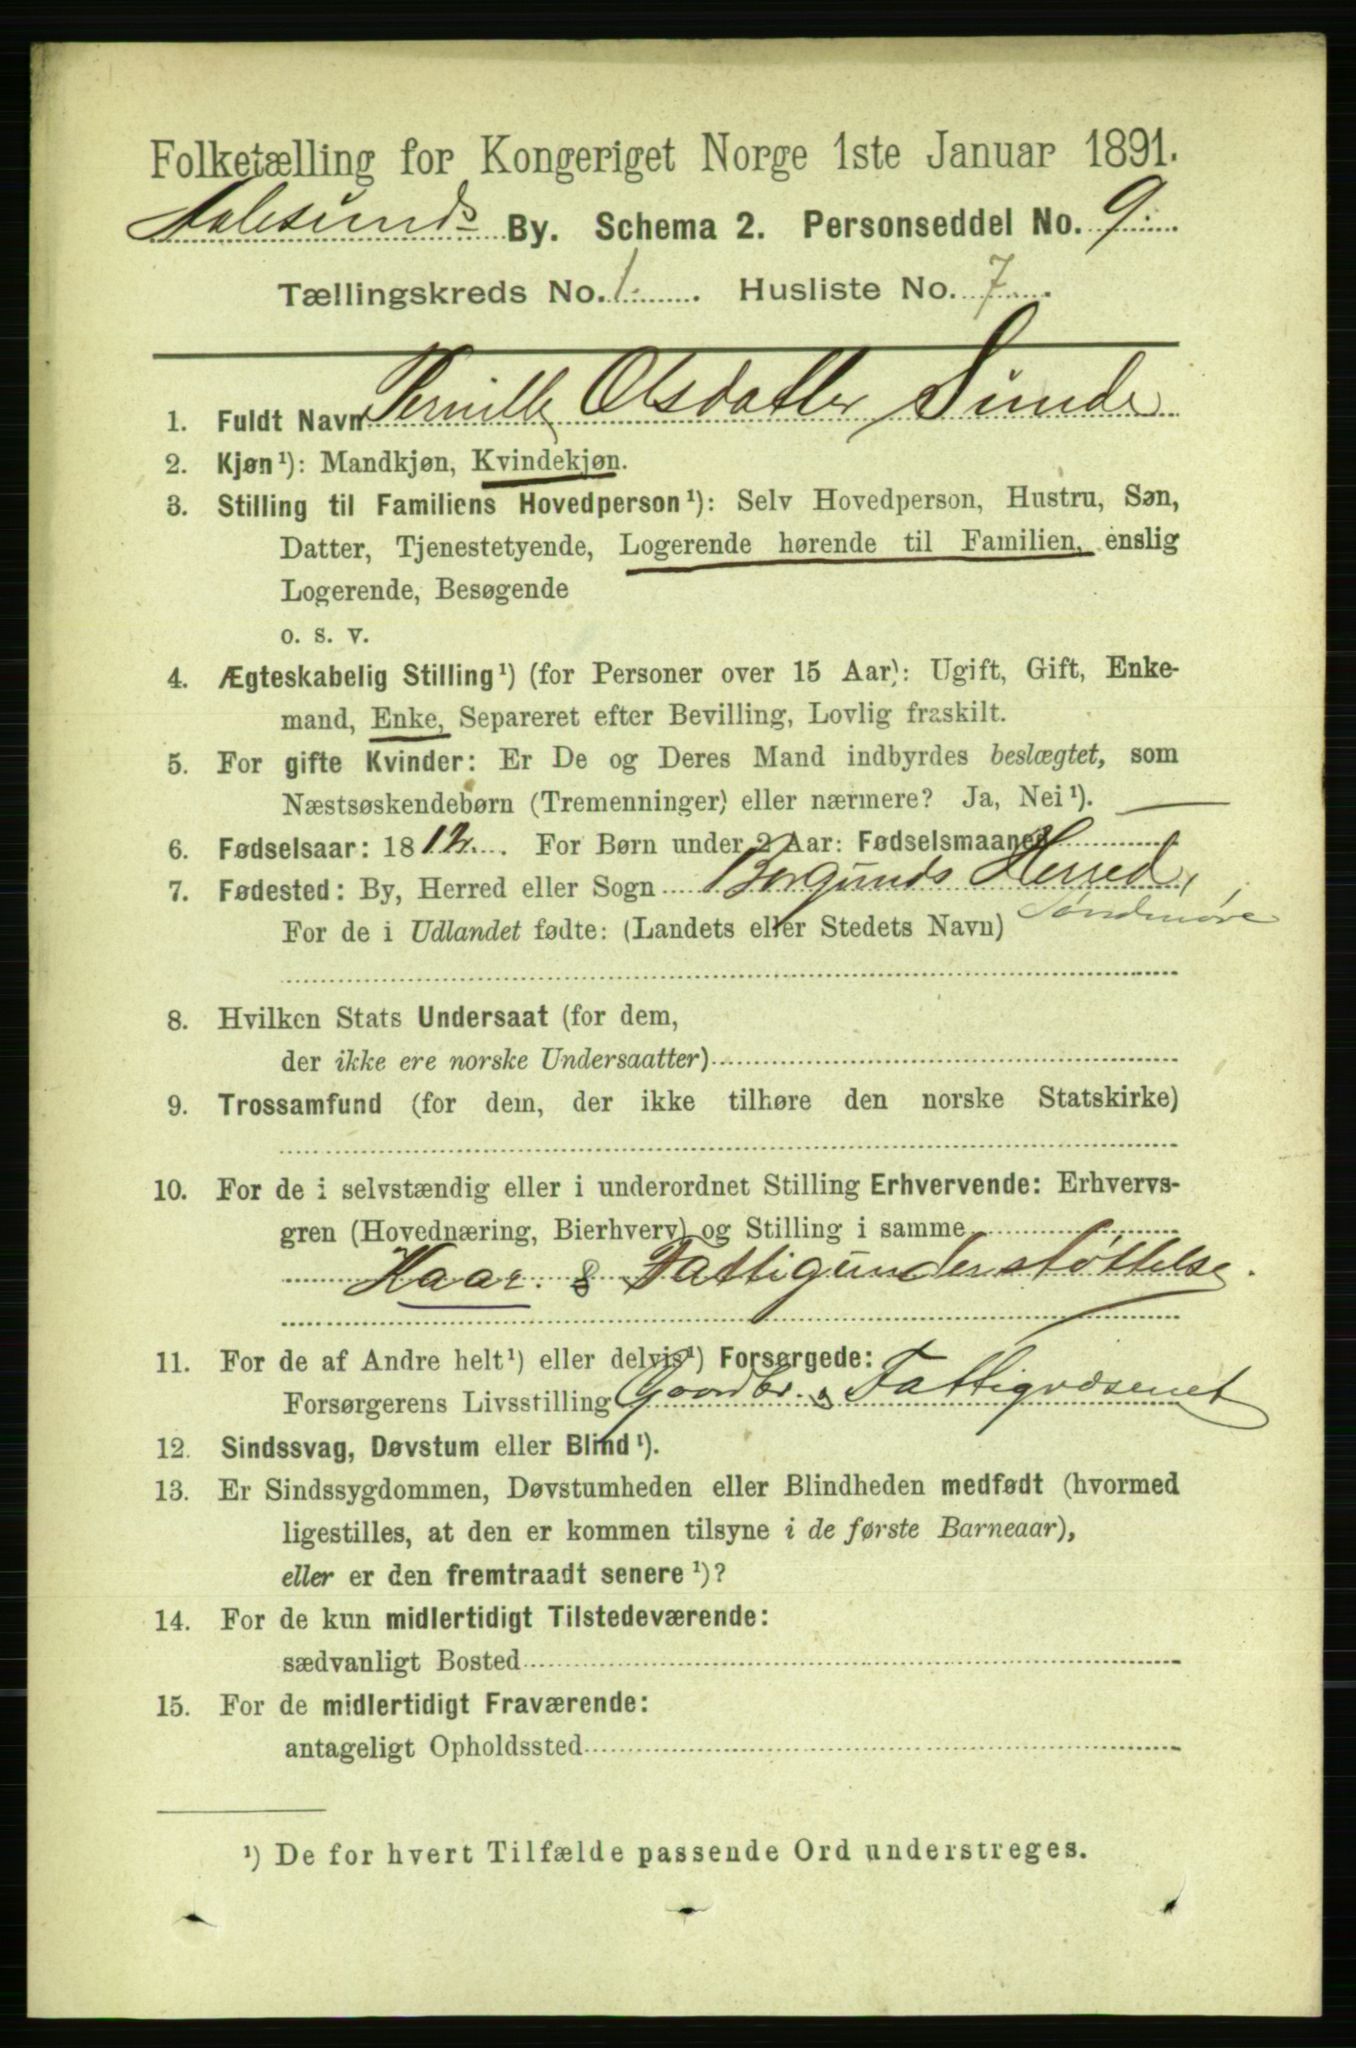 Folketælling for Kongeriget Norge 1ste Januar 1891.
Aalesunds By. Schema 2. Personseddel No. 9.
Tællingskreds No. 1. Husliste No. 7.
1. Fuldt Navn Pernille Olsdatter Sunde
2. Kjøn¹): Mandkjøn, Kvindekjøn.
3. Stilling til Familiens Hovedperson¹): Selv Hovedperson, Hustru, Søn,
Datter, Tjenestetyende, Logerende hørende til Familien, enslig
Logerende, Besøgende
o. s. v.
4. Ægteskabelig Stilling¹) (for Personer over 15 Aar): Ugift, Gift, Enke-
mand, Enke, Separeret efter Bevilling, Lovlig fraskilt.
5. For gifte Kvinder: Er De og Deres Mand indbyrdes beslægtet, som
Næstsøskendebørn (Tremenninger) eller nærmere? Ja, Nei¹). —
6. Fødselsaar: 1812. For Børn under 2 Aar: Fødselsmaaned
7. Fødested: By, Herred eller Sogn Borgunds Herred,
Søndmøre
For de i Udlandet fødte: (Landets eller Stedets Navn)
8. Hvilken Stats Undersaat (for dem,
der ikke ere norske Undersaatter)
9. Trossamfund (for dem, der ikke tilhøre den norske Statskirke)
10. For de i selvstændig eller i underordnet Stilling Erhvervende: Erhvervs-
gren (Hovednæring, Bierhverv) og Stilling i samme
Kaar. & Fattigunderstøttelse.
11. For de af Andre helt¹) eller delvis¹) Forsørgede:
Forsørgerens Livsstilling Gaardbr. & Fattigvæsenet
12. Sindssvag, Døvstum eller Blind¹).
13. Er Sindssygdommen, Døvstumheden eller Blindheden medfødt (hvormed
ligestilles, at den er kommen tilsyne i de første Barneaar),
eller er den fremtraadt senere¹)?
14. For de kun midlertidigt Tilstedeværende:
sædvanligt Bosted
15. For de midlertidigt Fraværende:
antageligt Opholdssted
¹) De for hvert Tilfælde passende Ord understreges.